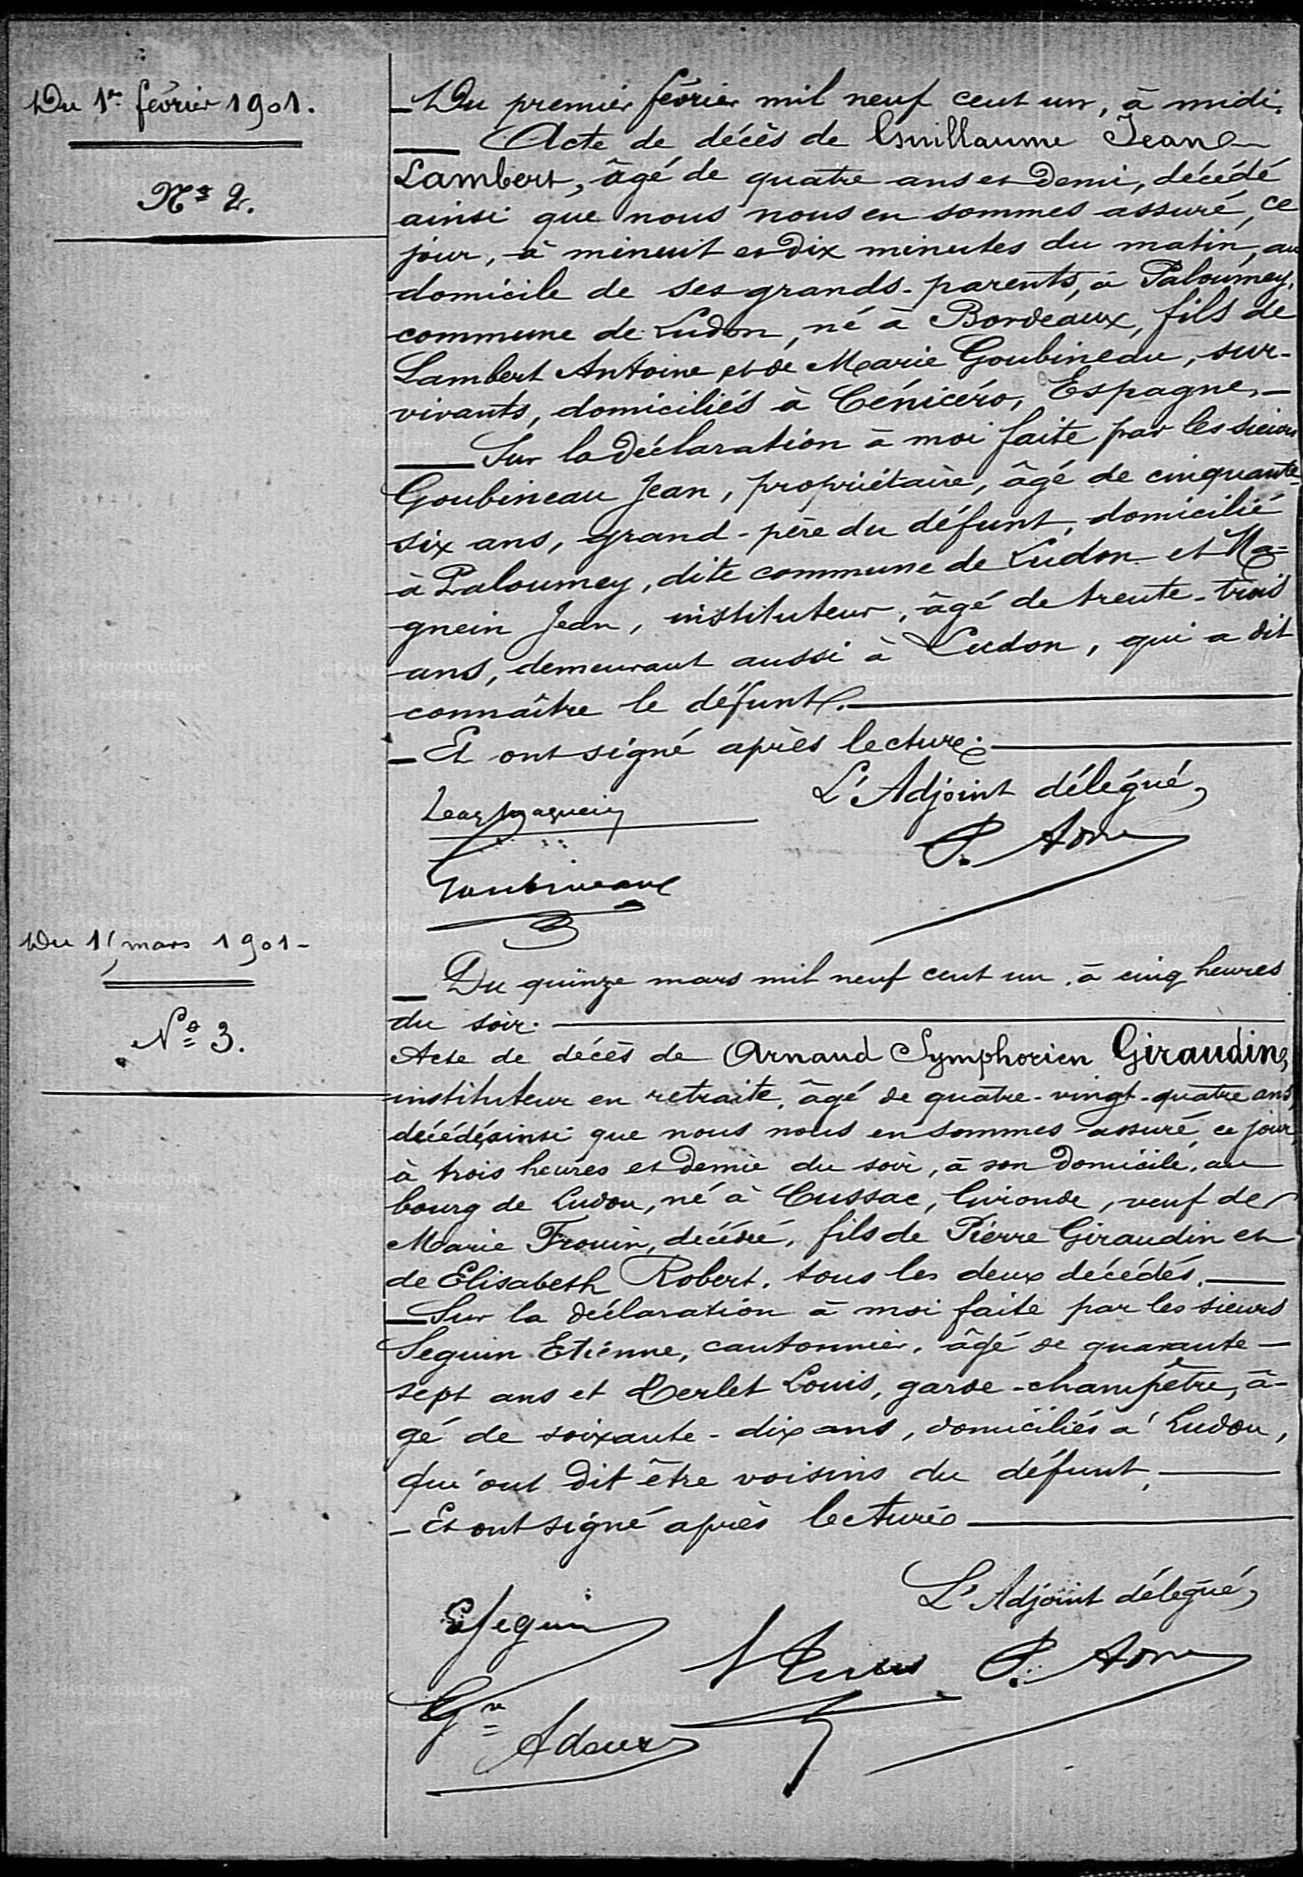 Du 1er février 1901.
No 2.
Du premier février mil neuf cent un, à midi.
Acte de décès de Guillaume Jean
Lambert, âgé de quatre ans et demi, décédé
ainsi que nous nous en sommes assuré, ce
jour, à minuit et dix minutes du matin, au
domicile de ses grands-parents, à Paloumey,
commune de Ludon, né à Bordeaux, fils de
Lambert Antoine et de Marie Goubineau, sur-
vivants, domiciliés à Cénicéro, Espagne.
Sur la déclaration à moi faite par les sieurs
Goubineau Jean, propriétaire, âgé de cinquante-
six ans, grand-père du défunt, domicilié
à Paloumey, dite commune de Ludon et Ma-
gnein Jean, instituteur, âgé de trente-trois
ans, demeurant aussi à Ludon, qui a dit
connaître le défunt.
Et ont signé après lecture.
L'Adjoint délégué,
Jean Magnein
Goubineau
Du 15 mars 1901
No 3.
Du quinze mars mil neuf cent un, à cinq heures
du soir.
Acte de décès de Arnaud Symphorien Giraudin,
instituteur en retraite, âgé de quatre-vingt-quatre ans,
décédé ainsi que nous nous en sommes assuré, ce jour,
à trois heures et demie du soir, à son domicile, au
bourg de Ludon, né à Cussac, Gironde, veuf de
Marie Frouin, décédé, fils de Pierre Giraudin et
de Elisabeth Robert, tous les deux décédés.
Sur la déclaration à moi faite par les sieurs
Seguin Etienne, cantonnier, âgé de quarante-
sept ans et Berlet Louis, garde-champêtre, â-
gé de soixante-dix ans, domiciliés à Ludon,
qui ont dit être voisins du défunt.
Et ont signé après lecture
L'Adjoint délégué,
E Seguin